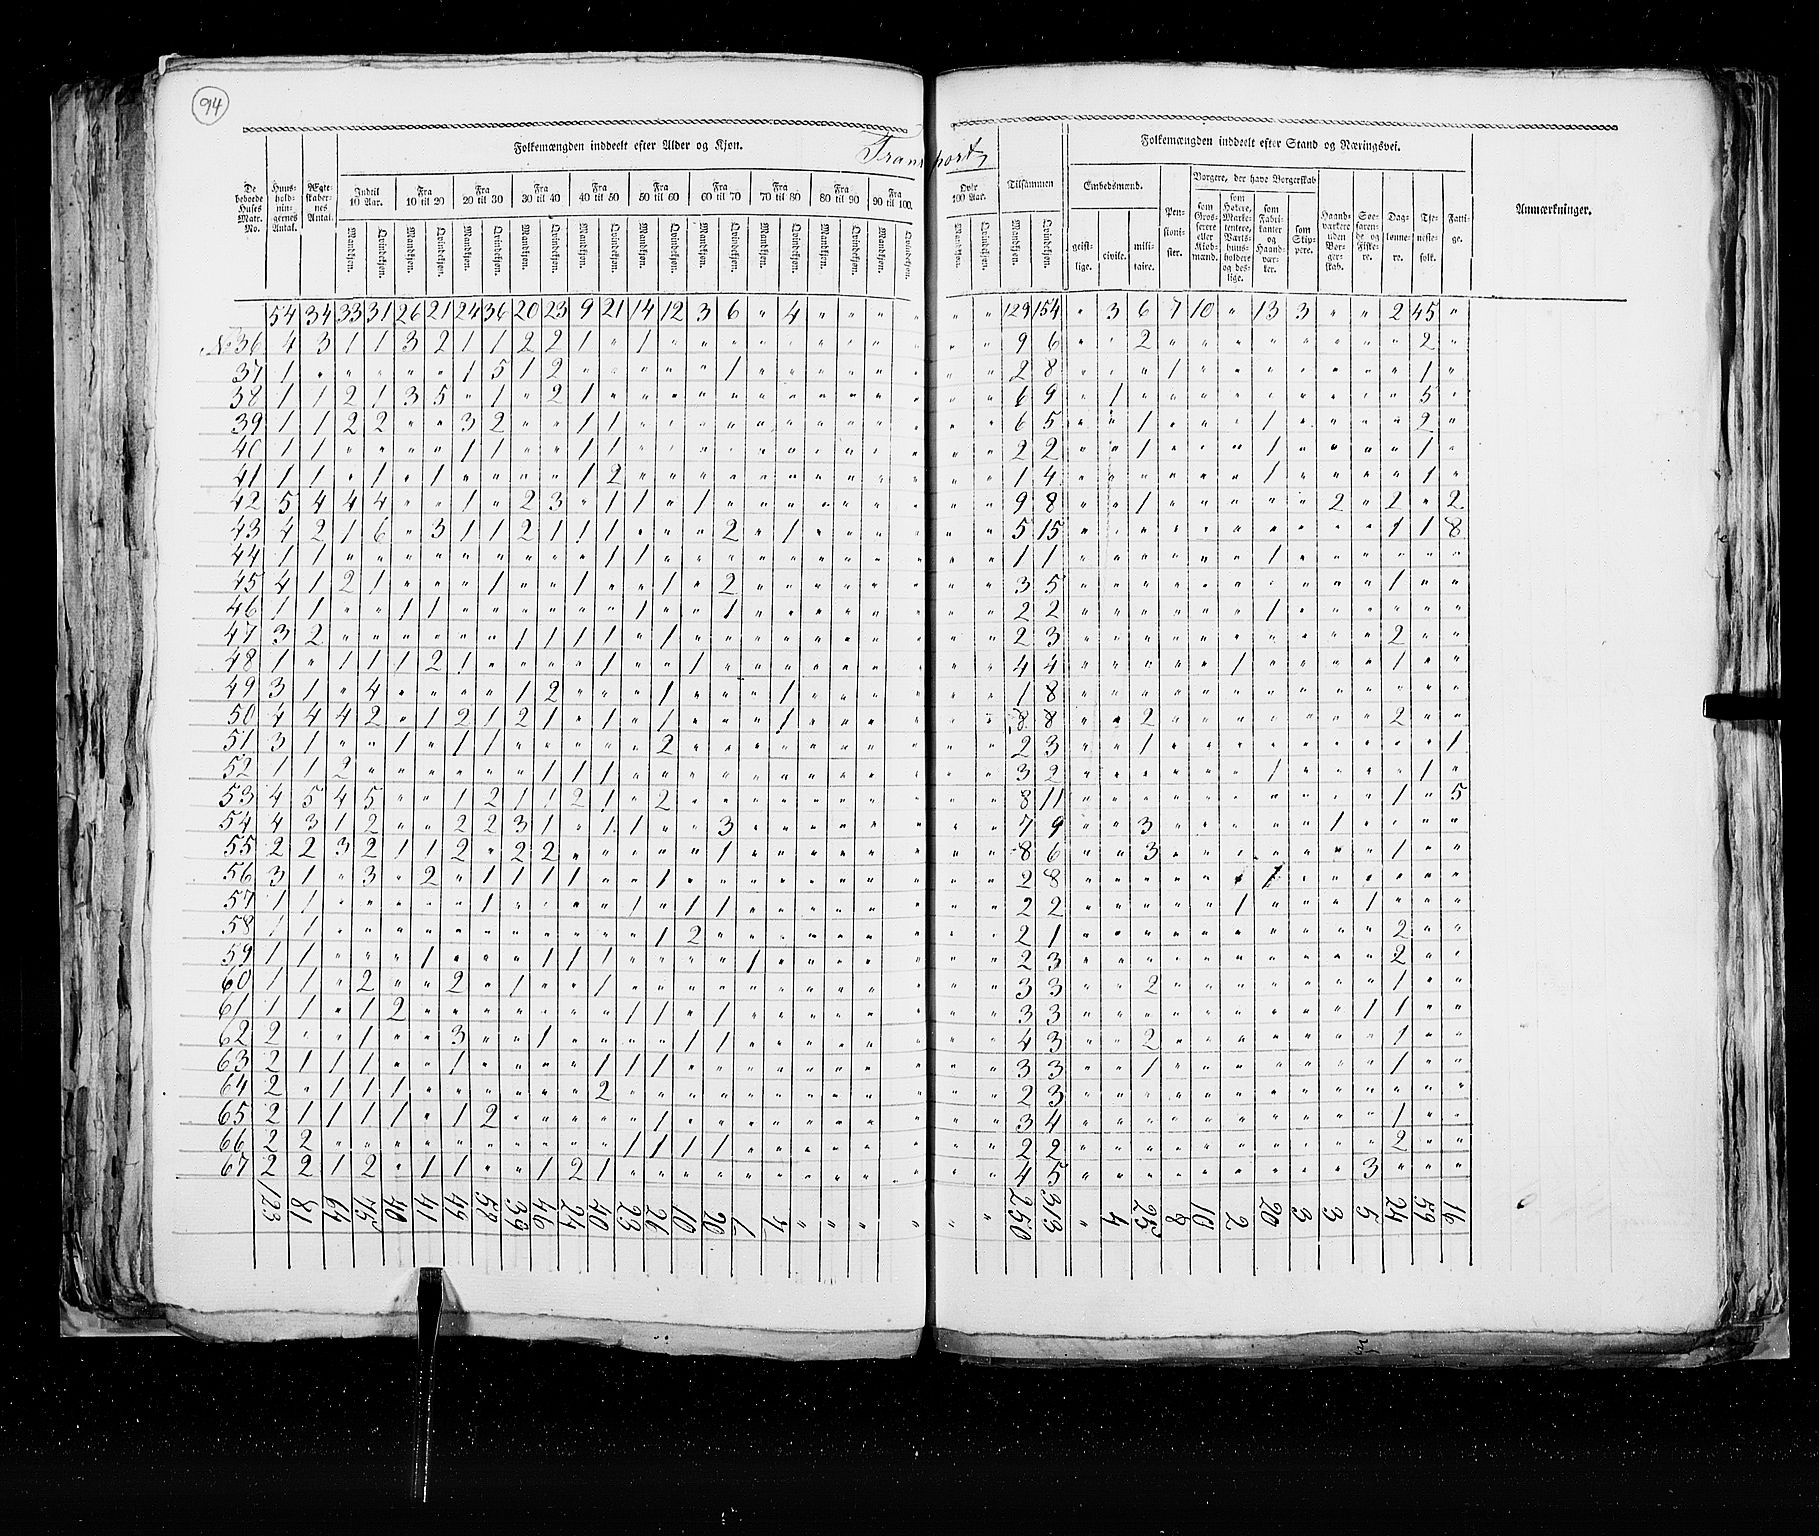 94
Transport,
Folkemængden inddeelt efter Alder og Kjøn.
Folkemængden inddeelt efter Stand og Næringsvei.
De beboede Huses Matr. No.
Huusholdningernes Antal.
Ægteskabernes Antal.
Indtil 10 Aar. Fra 10 til 20 Fra 20 til 30 Fra 30 til 40 Fra 40 til 50 Fra 50 til 60 Fra 60 til 70 Fra 70 til 80 Fra 80 til 90 Fra 90 til 100. Over 100 Aar. Tilsammen
Mandkjøn. Qvindekjøn. Mandkjøn. Qvindekjøn. Mandkjøn. Qvindekjøn. Mandkjøn. Qvindekjøn. Mandkjøn. Qvindekjøn. Mandkjøn. Qvindekjøn. Mandkjøn. Qvindekjøn. Mandkjøn. Qvindekjøn. Mandkjøn. Qvindekjøn. Mandkjøn. Qvindekjøn. Mandkjøn. Qvindekjøn. Mandkjøn. Qvindekjøn.
Embedsmænd.
geistlige. civile. militaire.
Pensionister.
Borgere, der have Borgerskab
som Grosserere eller Kiøbmænd.
som Høkere, Marketentere, Værtshuusholdere og deslige.
som Fabrikanter og Haandværker.
som Skippere.
Haandværkere uden Borgerskab.
Søefarende og Fiskere.
Daglønnere.
Tjenestefolk.
Fattige.
Anmærkninger.
54 34 33 31 26 21 24 36 20 23 9 21 14 12 3 6 " 4 " " " " " " 129 154 " 3 6 7 10 " 13 3 " " 2 45 "
No 36 4 3 1 1 3 2 1 1 2 2 1 " 1 " " " " " " " " " " " 9 6 " " 2 " " " " " " " " 2 "
37 1 " " " " " 1 5 1 2 " " " " " 1 " " " " " " " " 2 8 " " " 1 " " " " " " " 1 "
38 1 1 2 1 3 5 " 1 " 2 1 " " " " " " " " " " " " " 6 9 " 1 " " " " " " " " " 5 "
39 1 1 2 2 " " 3 2 " " 1 1 " " " " " " " " " " " " 6 5 " " 1 " " " 1 " " " " 2 "
40 1 1 " " " " 1 1 " " 1 1 " " " " " " " " " " " " 2 2 " " 1 " " " 1 " " " " 1 "
41 1 1 " 1 " 1 " " " " 1 2 " " " " " " " " " " " " 1 4 " " " " " " 1 " " " " 1 "
42 5 4 4 4 " " 1 " 2 3 " 1 1 " 1 " " " " " " " " " 9 8 " " 1 " " " " " 2 " 2 " 2
43 4 2 1 6 " 3 1 1 2 1 1 1 " " " 2 " 1 " " " " " " 5 15 " " " " " " " " " " 1 1 8
44 1 1 " " " " " " " " " 1 1 " " " " " " " " " " " 1 1 " " " " " " 1 " " " " " "
45 4 1 2 1 " " " 1 " " 1 " " 1 " 2 " " " " " " " " 3 5 " " " " " " " " " " 1 " "
46 1 1 " " 1 1 " " " " " " 1 " " 1 " " " " " " " " 2 2 " " " " " " 1 " " " " " "
47 3 2 " " " " " " 1 1 1 1 " 1 " " " " " " " " " " 2 3 " " " " " " " " " " 2 " "
48 1 " 1 1 1 2 1 " " " " 1 " " 1 " " " " " " " " " 4 4 " " " " " 1 " " " " 1 " "
49 3 1 " 4 " " " " 1 2 " " " 1 " " " 1 " " " " " " 1 8 " " " " " " " " " " " " "
50 4 4 4 2 " 1 2 1 2 1 " 1 " 1 " " " 1 " " " " " " 8 8 " " 2 " " " " " " " 2 " "
51 3 1 " " 1 " 1 1 " " " " " 2 " " " " " " " " " " 2 3 " " 1 " " " " " " " " " 1
52 1 1 2 " " " " " " 1 1 1 " " " " " " " " " " " " 3 2 " " " " " " 1 " " " " 1 "
53 4 5 4 5 " " 1 2 1 1 2 1 " 2 " " " " " " " " " " 8 11 " " " " " " " " " " 1 " 5
54 4 3 1 2 " " 2 2 3 1 " 1 1 " " 3 " " " " " " " " 7 9 " " 3 " " " " " 1 " " " "
55 2 2 3 2 1 1 2 " 2 2 " " " " " 1 " " " " " " " " 8 6 " " 3 " " " " " " " 1 " "
56 3 1 " 3 " 2 " 1 1 1 1 " " 1 " " " " " " " " " " 2 8 " " " " " " 1 " " " " " "
57 1 1 " " " " " 1 " " " " 1 " 1 1 " " " " " " " " 2 2 " " " " " 1 " " " 1 " " "
58 1 1 " " " " " " " " " " " 1 2 " " " " " " " " " 2 1 " " " " " " " " " " 2 " "
59 1 1 " " " 1 " " " 1 1 1 " " " " 1 " " " " " " " 2 3 " " " " " " " " " " 2 " "
60 1 1 " 2 " " 2 " 1 " " 1 " " " " " " " " " " " " 3 3 " " 2 " " " " " " " 1 " "
61 1 1 " 1 2 " " " " " " " 1 1 " 1 " " " " " " " " 3 3 " " " " " " " " " 1 1 " "
62 2 " " 1 " " 3 " " 1 " " " " 1 1 " " " " " " " " 4 3 " " 2 " " " " " " " 1 " "
63 2 1 1 1 " " 1 " " " " 1 1 1 " " " " " " " " " " 3 3 " " 1 " " " " " " " 1 " "
64 2 " 1 1 1 " " " " " " 2 " " " " " " " " " " " " 2 3 " " " " " " " " " " " " "
65 2 1 1 1 1 " 1 2 " " " " " 1 " " " " " " " " " " 3 4 " " " " " " " " " " 1 " "
66 2 2 " " " " " " " " " " 1 1 1 1 " " " " " " " " 2 2 " " " " " " " " " " 2 " "
67 2 2 1 2 " 1 1 " " 1 2 1 " " " " " " " " " " " " 4 5 " " " " " " " " " 3 " " "
123 81 64 75 40 41 49 59 39 46 24 40 23 26 10 20 1 7 " " " " " 250 313 " 4 25 8 10 2 20 3 3 5 24 59 16